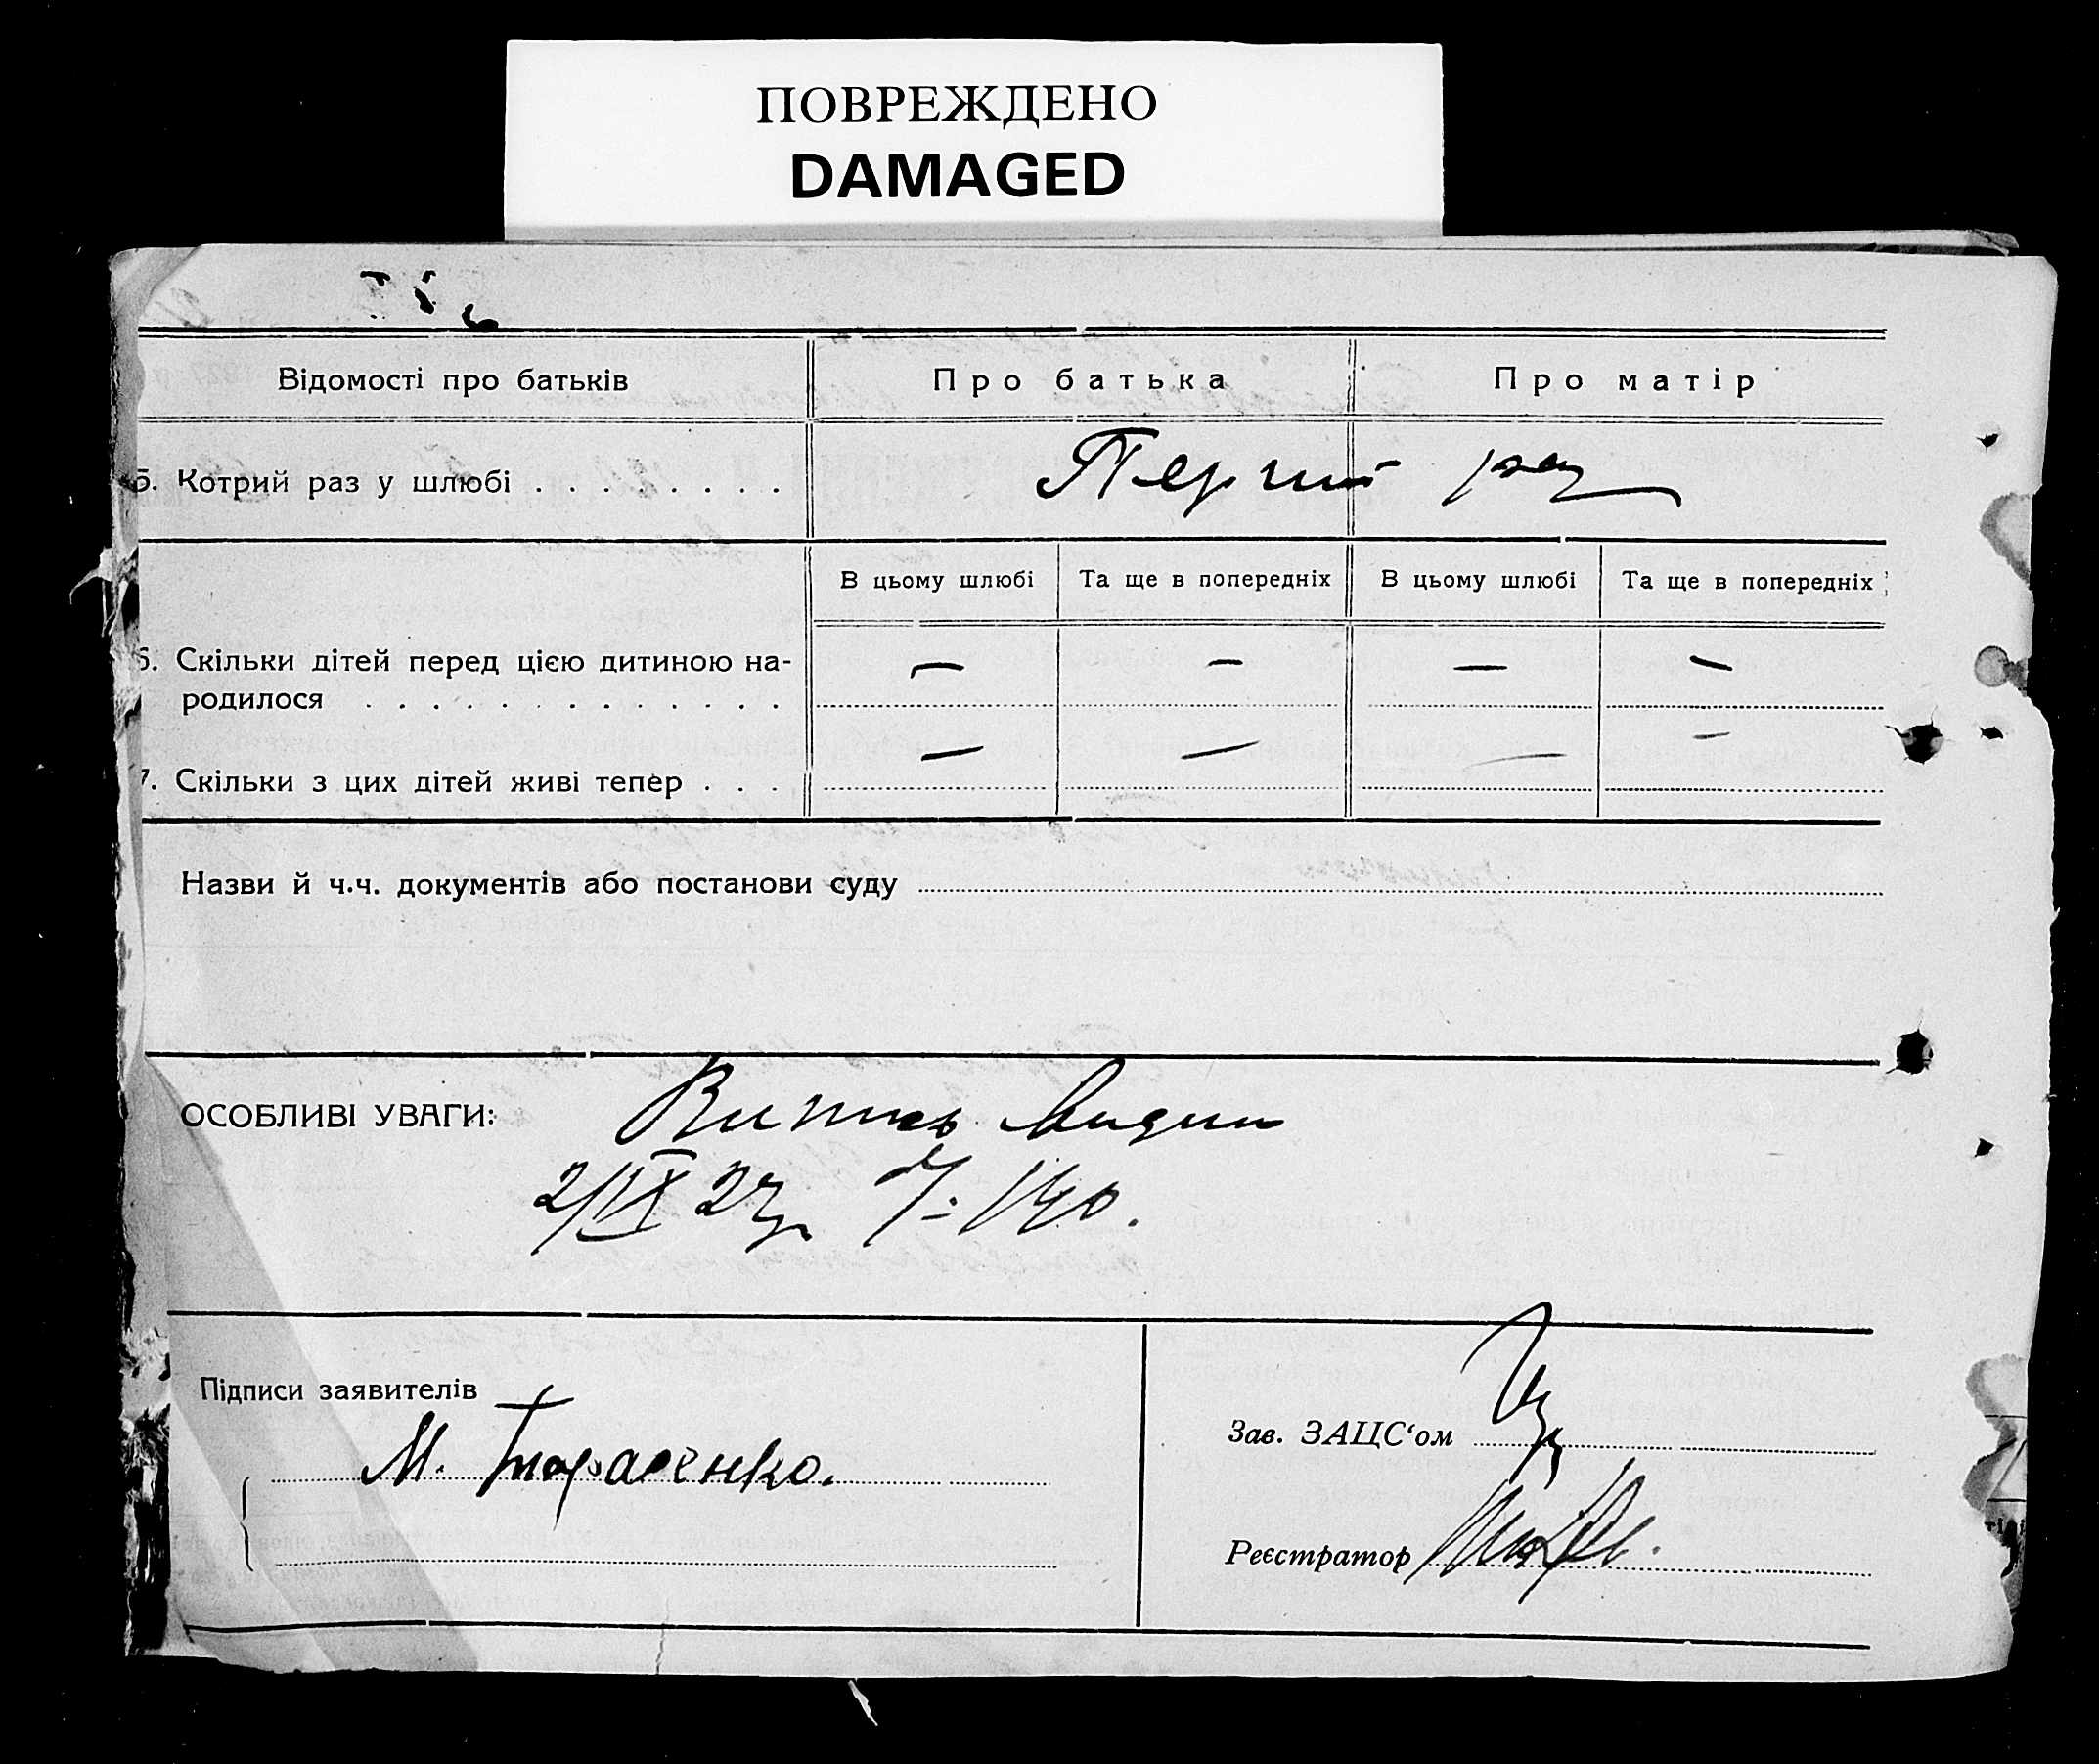 ПОВРЕЖДЕНО
DAMAGED
Відомості про батьків
Про батька
Про матір
5. Котрий раз у шлюбі . . . . . . . .
Перший раз
В цьому шлюбі
Та ще в попередніх
В цьому шлюбі
Та ще в попередніх
6. Скільки дітей перед цією дитиною на-
родилося . . . . . . . . . . . . .
— — — —
7. Скільки з цих дітей живі тепер . . .
— — — —
Назви й ч.ч. документів або постанови суду
ОСОБЛИВІ УВАГИ:
Випись видан
2/IX 27р.
Підписи заявителів
М. Тарасенко.
Зав. ЗАЦС‘ом
Реєстратор